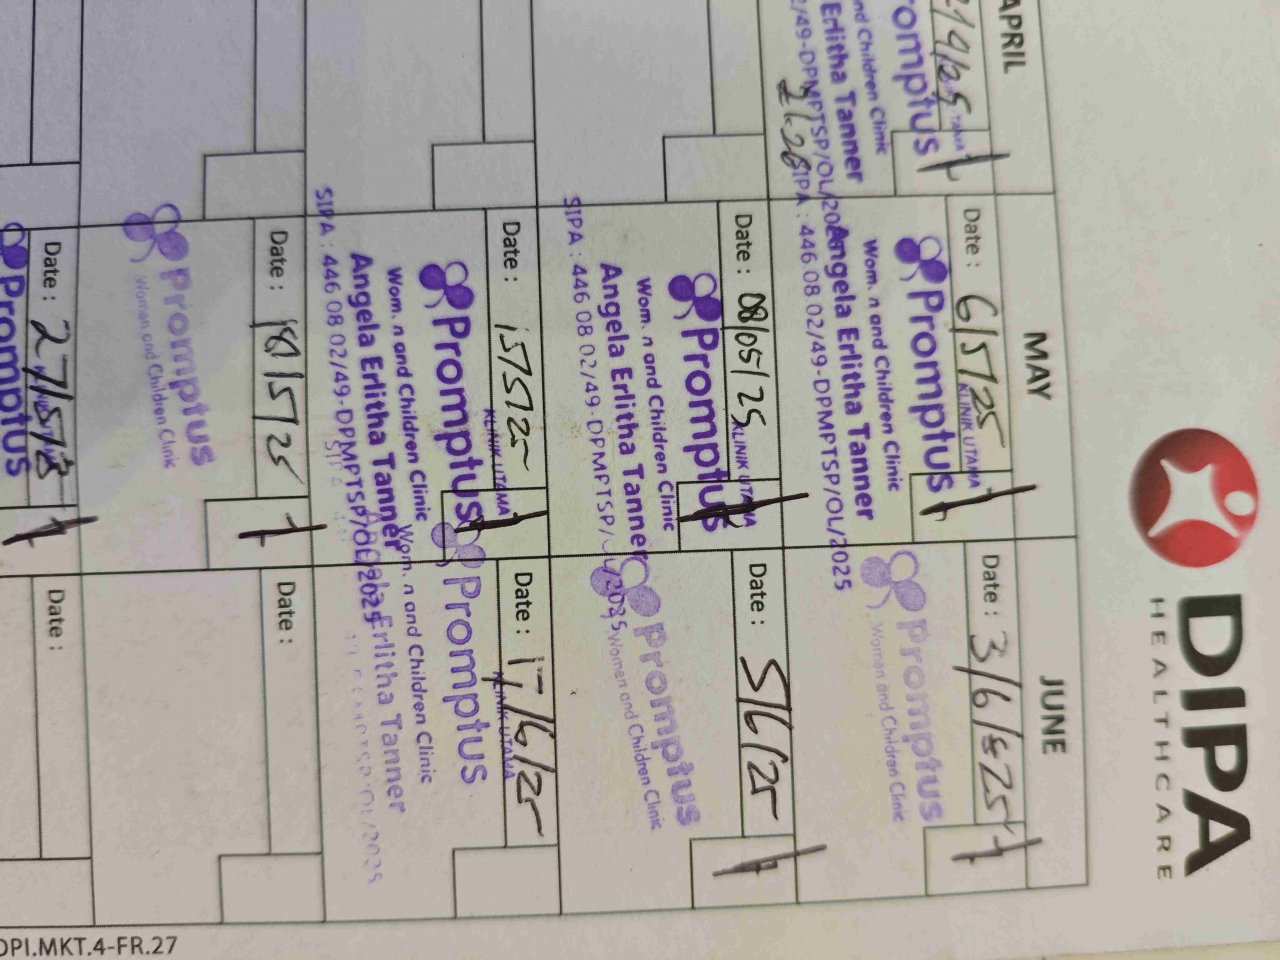 DIPA
HEALTHCARE
APRIL
MAY
JUNE
Promptus
and Children Clinic
Erlitha Tanner
/49-DPMPTSP/OL/20
Date : 6/5/25
KLINIK UTAMA
Promptus
Wom. n and Children Clinic
Angela Erlitha Tanner
SIPA : 446 08 02/49-DPMPTSP/OL/2025
Date : 3/6/25
promptus
Women and Children Clinic
Date : 08/05/25
KLINIK UTAMA
Promptus
Wom. n and Children Clinic
Angela Erlitha Tanner
SIPA : 446 08 02/49-DPMPTSP/OL/2025
Date : 5/6/25
promptus
Women and Children Clinic
Date : 15/5/25
KLINIK UTAMA
Promptus
Wom. n and Children Clinic
Angela Erlitha Tanner
SIPA : 446 08 02/49-DPMPTSP/OL/2025
Date : 17/6/25
KLINIK UTAMA
Promptus
Wom. n and Children Clinic
Erlitha Tanner
Date : 18/5/25
promptus
Women and Children Clinic
Date :
Date : 27/5/
Promptus
Date :
DPI.MKT.4-FR.27